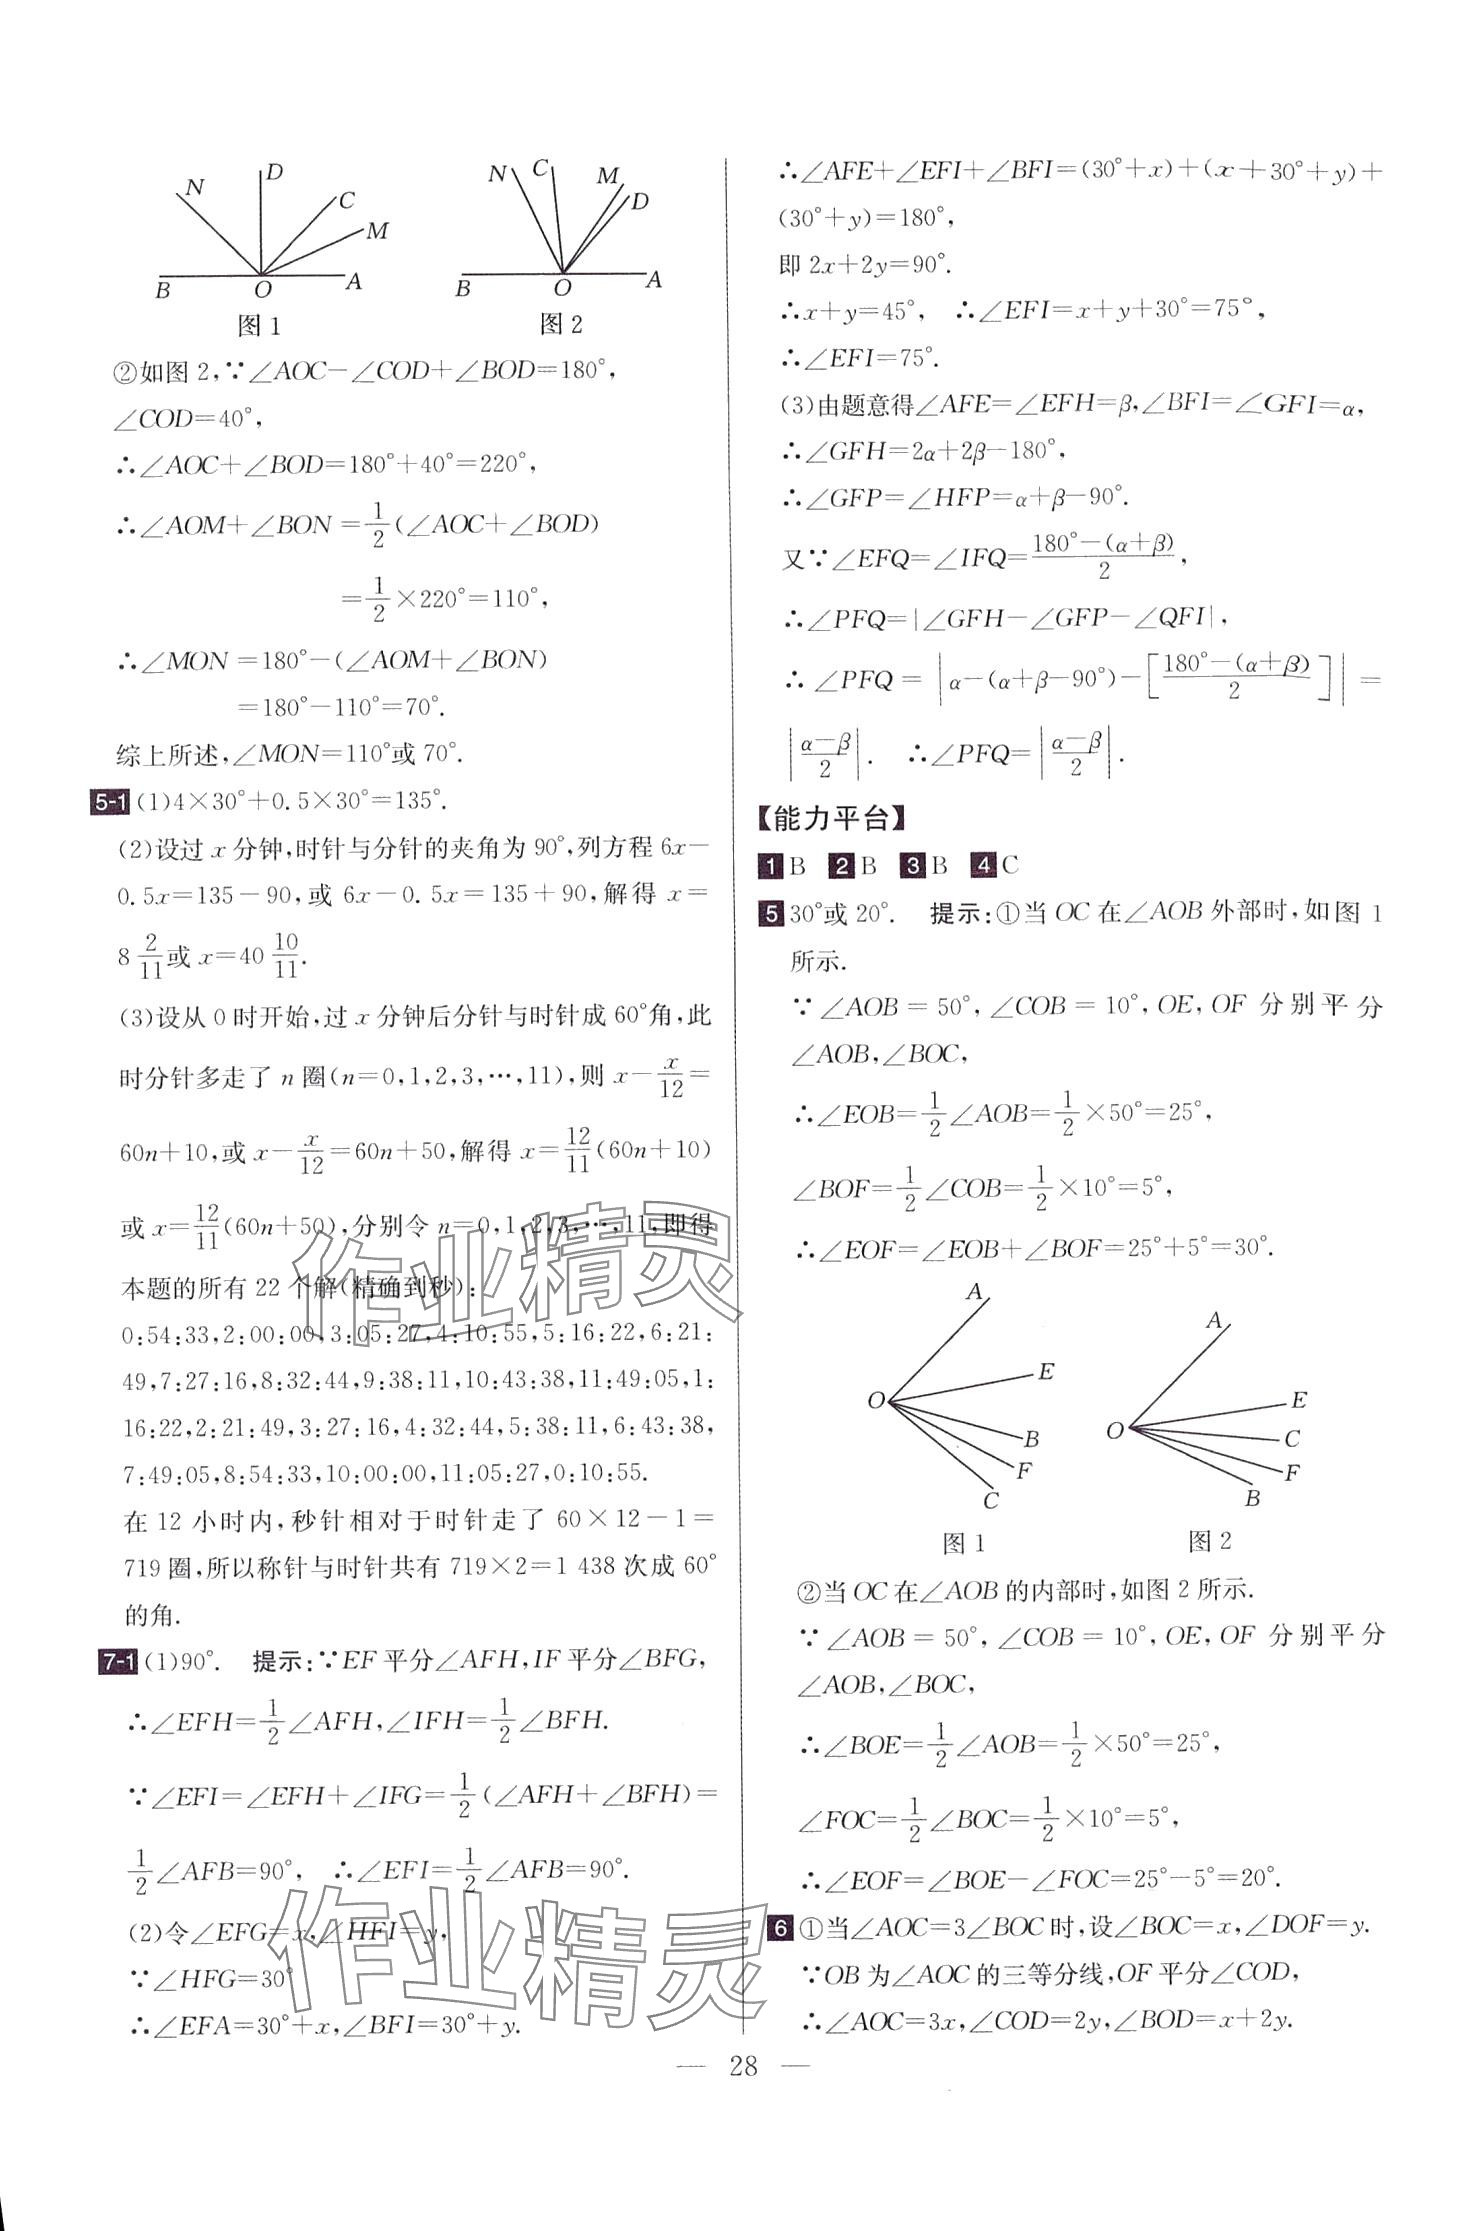 N D C M B O A
图1
N C M D B O A
图2
②如图2,∵∠AOC−∠COD+∠BOD=180°,
∠COD=40°,
∴∠AOC+∠BOD=180°+40°=220°,
∴∠AOM+∠BON=1/2(∠AOC+∠BOD)
=1/2×220°=110°,
∴∠MON=180°−(∠AOM+∠BON)
=180°−110°=70°.
综上所述,∠MON=110°或70°.
5-1 (1)4×30°+0.5×30°=135°.
(2)设过x分钟,时针与分针的夹角为90°,列方程6x−
0.5x=135−90,或6x−0.5x=135+90,解得x=
8 2/11或x=40 10/11.
(3)设从0时开始,过x分钟后分针与时针成60°角,此
时分针多走了n圈(n=0,1,2,3,…,11),则x−x/12=
60n+10,或x−x/12=60n+50,解得x=12/11(60n+10)
或x=12/11(60n+50),分别令n=0,1,2,3,…,11,即得
本题的所有22个解(精确到秒):
0:54:33,2:00:00,3:05:27,4:10:55,5:16:22,6:21:
49,7:27:16,8:32:44,9:38:11,10:43:38,11:49:05,1:
16:22,2:21:49,3:27:16,4:32:44,5:38:11,6:43:38,
7:49:05,8:54:33,10:00:00,11:05:27,0:10:55.
在12小时内,秒针相对于时针走了60×12−1=
719圈,所以称针与时针共有719×2=1 438次成60°
的角.
7-1 (1)90°. 提示:∵EF平分∠AFH,IF平分∠BFG,
∴∠EFH=1/2∠AFH,∠IFH=1/2∠BFH.
∵∠EFI=∠EFH+∠IFG=1/2(∠AFH+∠BFH)=
1/2∠AFB=90°, ∴∠EFI=1/2∠AFB=90°.
(2)令∠EFG=x,∠HFI=y,
∵∠HFG=30°
∴∠EFA=30°+x,∠BFI=30°+y.
∴∠AFE+∠EFI+∠BFI=(30°+x)+(x+30°+y)+
(30°+y)=180°,
即2x+2y=90°.
∴x+y=45°, ∴∠EFI=x+y+30°=75°,
∴∠EFI=75°.
(3)由题意得∠AFE=∠EFH=β,∠BFI=∠GFI=α,
∴∠GFH=2α+2β−180°,
∴∠GFP=∠HFP=α+β−90°.
又∵∠EFQ=∠IFQ=180°−(α+β)/2,
∴∠PFQ=|∠GFH−∠GFP−∠QFI|,
∴∠PFQ=|α−(α+β−90°)−[180°−(α+β)/2]|=
|α−β/2|. ∴∠PFQ=|α−β/2|.
【能力平台】
1 B 2 B 3 B 4 C
5 30°或20°. 提示:①当OC在∠AOB外部时,如图1
所示.
∵∠AOB=50°,∠COB=10°,OE,OF分别平分
∠AOB,∠BOC,
∴∠EOB=1/2∠AOB=1/2×50°=25°,
∠BOF=1/2∠COB=1/2×10°=5°,
∴∠EOF=∠EOB+∠BOF=25°+5°=30°.
A E O B F C
图1
A E O C F B
图2
②当OC在∠AOB的内部时,如图2所示.
∵∠AOB=50°,∠COB=10°,OE,OF分别平分
∠AOB,∠BOC,
∴∠BOE=1/2∠AOB=1/2×50°=25°,
∠FOC=1/2∠BOC=1/2×10°=5°,
∴∠EOF=∠BOE−∠FOC=25°−5°=20°.
6 ①当∠AOC=3∠BOC时,设∠BOC=x,∠DOF=y.
∵OB为∠AOC的三等分线,OF平分∠COD,
∴∠AOC=3x,∠COD=2y,∠BOD=x+2y.
— 28 —
作业精灵
作业精灵